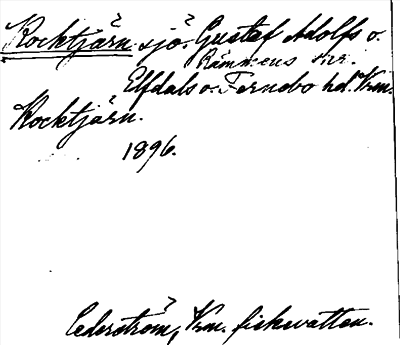 Rocktjärn sjö. Gustaf Adolfs o.
Rämmens skr.
Elfdals o. Fernebo hd. Vrm.
Rocktjärn.
1896.
Cederström, Vrm. fiskevatten.